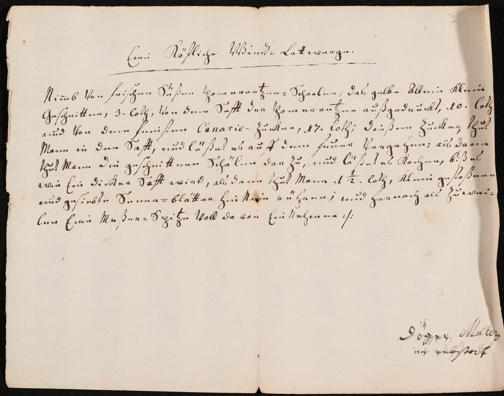 Eine Köstliche Wind-Latwerge.
Nimb Von frischen Süßen Pomerantzen-Schoelen, das gelbe allein klein
geschnitten, 3. Loth, Von dem Safft der Pomerantzen außgedruckt, 10. Loth
und Von dem feinsten Canarie-Zucker, 17. Loth; diesen Zucker thut
Mann in den Safft, und läßt es auf dem feuer Vergehen: als dann
thut Mann die geschnittene Schölen dar zu, und läßt es Kochen, biß es
wie Ein dicker Safft wird, als dann thut Mann 1 1/2. Loth, klein gestoßene
und gesiebte Senna-blätter hinein rühren; und hernach als Zuwei-
len Eine Meßer-Spitze Voll da von Ein Nehmen :/: